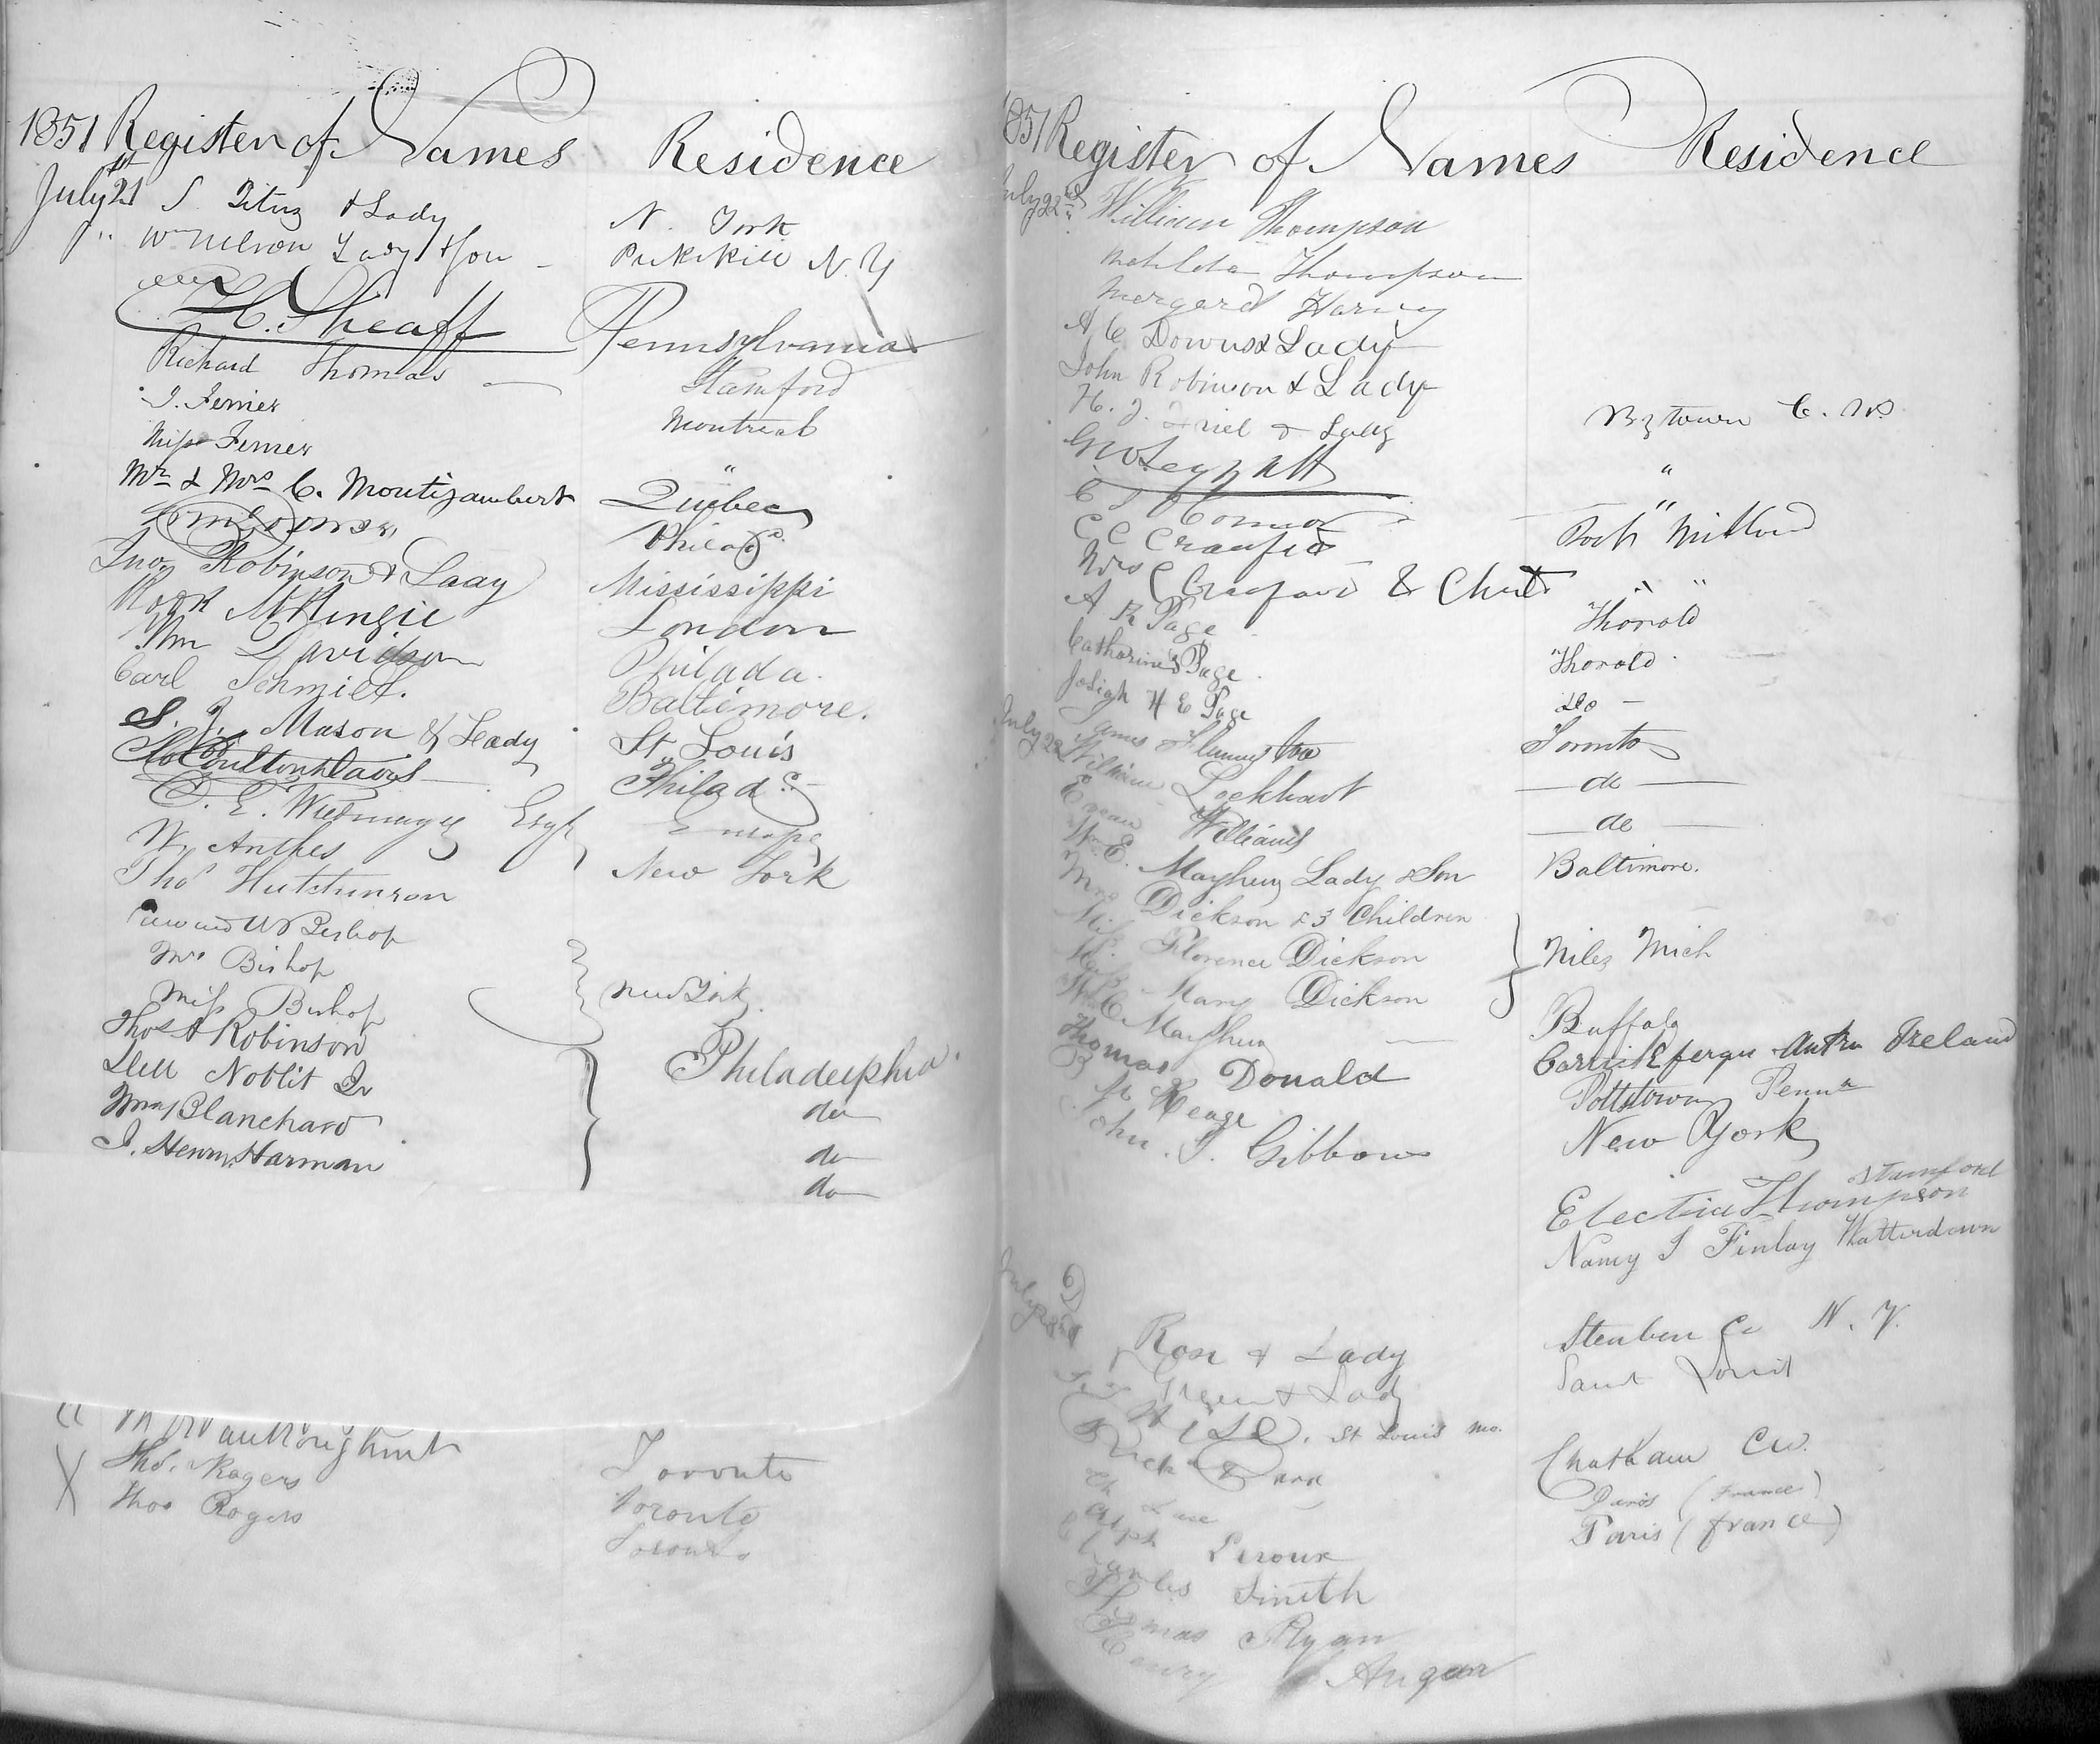 1851 Register of Names Residence
July 21st S. Titus & Lady N. York
" Wm Nelson Lady & Son Peekskill N.Y
H. Sheaff Pennsylvania
Richard Thomas Stamford
J. Ferrier Montreal
Miss Ferrier "
Mr & Mrs C. Montizambert Quebec
Philada
Jno Robinson & Lady Mississippi
McKenzie London
Wm Davidson Philada.
Carl Schmidt. Baltimore.
S. J. Mason & Lady St. Louis
Moulton Davis Philada
D. E. Esqr Europe
W. Anthes New York
Thos Hutchinson
Edward W Bishop
Mrs Bishop
Miss Bishop New York
Thos A Robinson Philadelphia
Dell Noblit Jr do
Wm Blanchard do
J. Henry Harman do
Thos. Rogers Toronto
Thos Rogers Toronto
Toronto
1851 Register of Names Residence
July 22d William Thompson
Matilda Thompson
Mergard Harvey
A C Downs & Lady
John Robinson & Lady
H. J. Friel & Lady Bytown C. W.
"
C S O Connor "
C C Craufurd Port Mitland
Mrs C Craufurd & Child " "
A R Page Thorold
Catharine Page Thorold
Josiah H E Page do
July 22 James Toronto
William Lockhart do
Evan Williams do
W. E. Mayhew Lady & Son Baltimore.
Mrs Dickson & 3 Children
Miss Florence Dickson Niles Mich
Miss Mary Dickson
W. C Mayhew Buffalo
Thomas Donald Carrickfergus Antrm Ireland
Pottstown Penna
John. T. Gibbons New York
Stamford
Electia Thompson
Nancy S Finlay Watterdown
July
Rose & Lady Steuben Co N. Y.
Green & Lady Saint Louis
St Louis Mo.
Chatham CW.
Paris (France)
Alph Leroux Paris (france)
Charles Smith
Thomas Ryan
Henry Angar